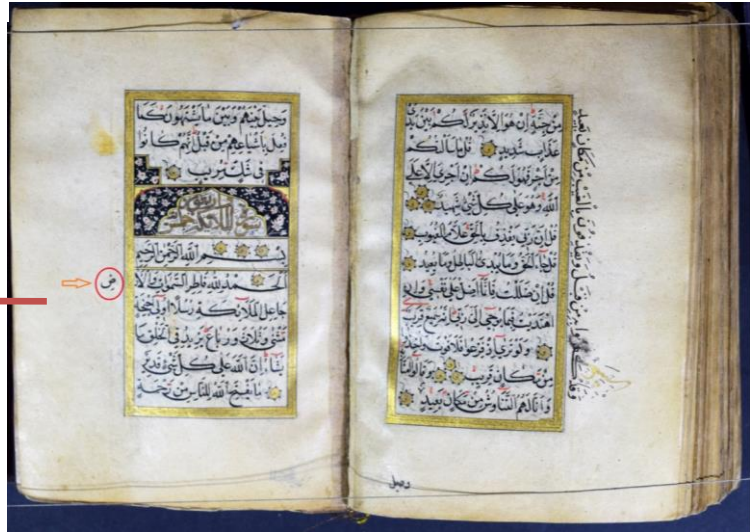 مِنْ جِنَّةٍ اِنْ هُوَ اِلَّا نَذِيرٌ لَكُمْ بَيْنَ يَدَىْ
عَذَابٍ شَدِيدٍ قُلْ مَا سَاَلْتُكُمْ
مِنْ اَجْرٍ فَهُوَ لَكُمْ اِنْ اَجْرِىَ اِلَّا عَلَى
اللّٰهِ وَهُوَ عَلٰى كُلِّ شَىْءٍ شَهِيدٌ
قُلْ اِنَّ رَبِّى يَقْذِفُ بِالْحَقِّ عَلَّامُ الْغُيُوبِ
قُلْ جَاءَ الْحَقُّ وَمَا يُبْدِئُ الْبَاطِلُ وَمَا يُعِيدُ
قُلْ اِنْ ضَلَلْتُ فَاِنَّمَا اَضِلُّ عَلٰى نَفْسِى وَاِنِ
اهْتَدَيْتُ فَبِمَا يُوحِى اِلَىَّ رَبِّى اِنَّهُ سَمِيعٌ قَرِيبٌ
وَلَوْ تَرٰى اِذْ فَزِعُوا فَلَا فَوْتَ وَاُخِذُوا
مِنْ مَكَانٍ قَرِيبٍ وَقَالُوا اٰمَنَّا
وَاَنّٰى لَهُمُ التَّنَاوُشُ مِنْ مَكَانٍ بَعِيدٍ
وَقَدْ كَفَرُوا بِهِ مِنْ قَبْلُ وَيَقْذِفُونَ بِالْغَيْبِ مِنْ مَكَانٍ بَعِيدٍ
وحيل
وَحِيلَ بَيْنَهُمْ وَبَيْنَ مَا يَشْتَهُونَ كَمَا
فُعِلَ بِاَشْيَاعِهِمْ مِنْ قَبْلُ اِنَّهُمْ كَانُوا
فِى شَكٍّ مُرِيبٍ
بِسْمِ اللّٰهِ الرَّحْمٰنِ الرَّحِيمِ
اَلْحَمْدُ لِلّٰهِ فَاطِرِ السَّمٰوَاتِ وَالْاَ
ض
جَاعِلِ الْمَلٰئِكَةِ رُسُلًا اُولِى اَجْنِحَةٍ
مَثْنٰى وَثُلَاثَ وَرُبَاعَ يَزِيدُ فِى الْخَلْقِ مَا
يَشَاءُ اِنَّ اللّٰهَ عَلٰى كُلِّ شَىْءٍ قَدِيرٌ
مَا يَفْتَحِ اللّٰهُ لِلنَّاسِ مِنْ رَحْمَةٍ